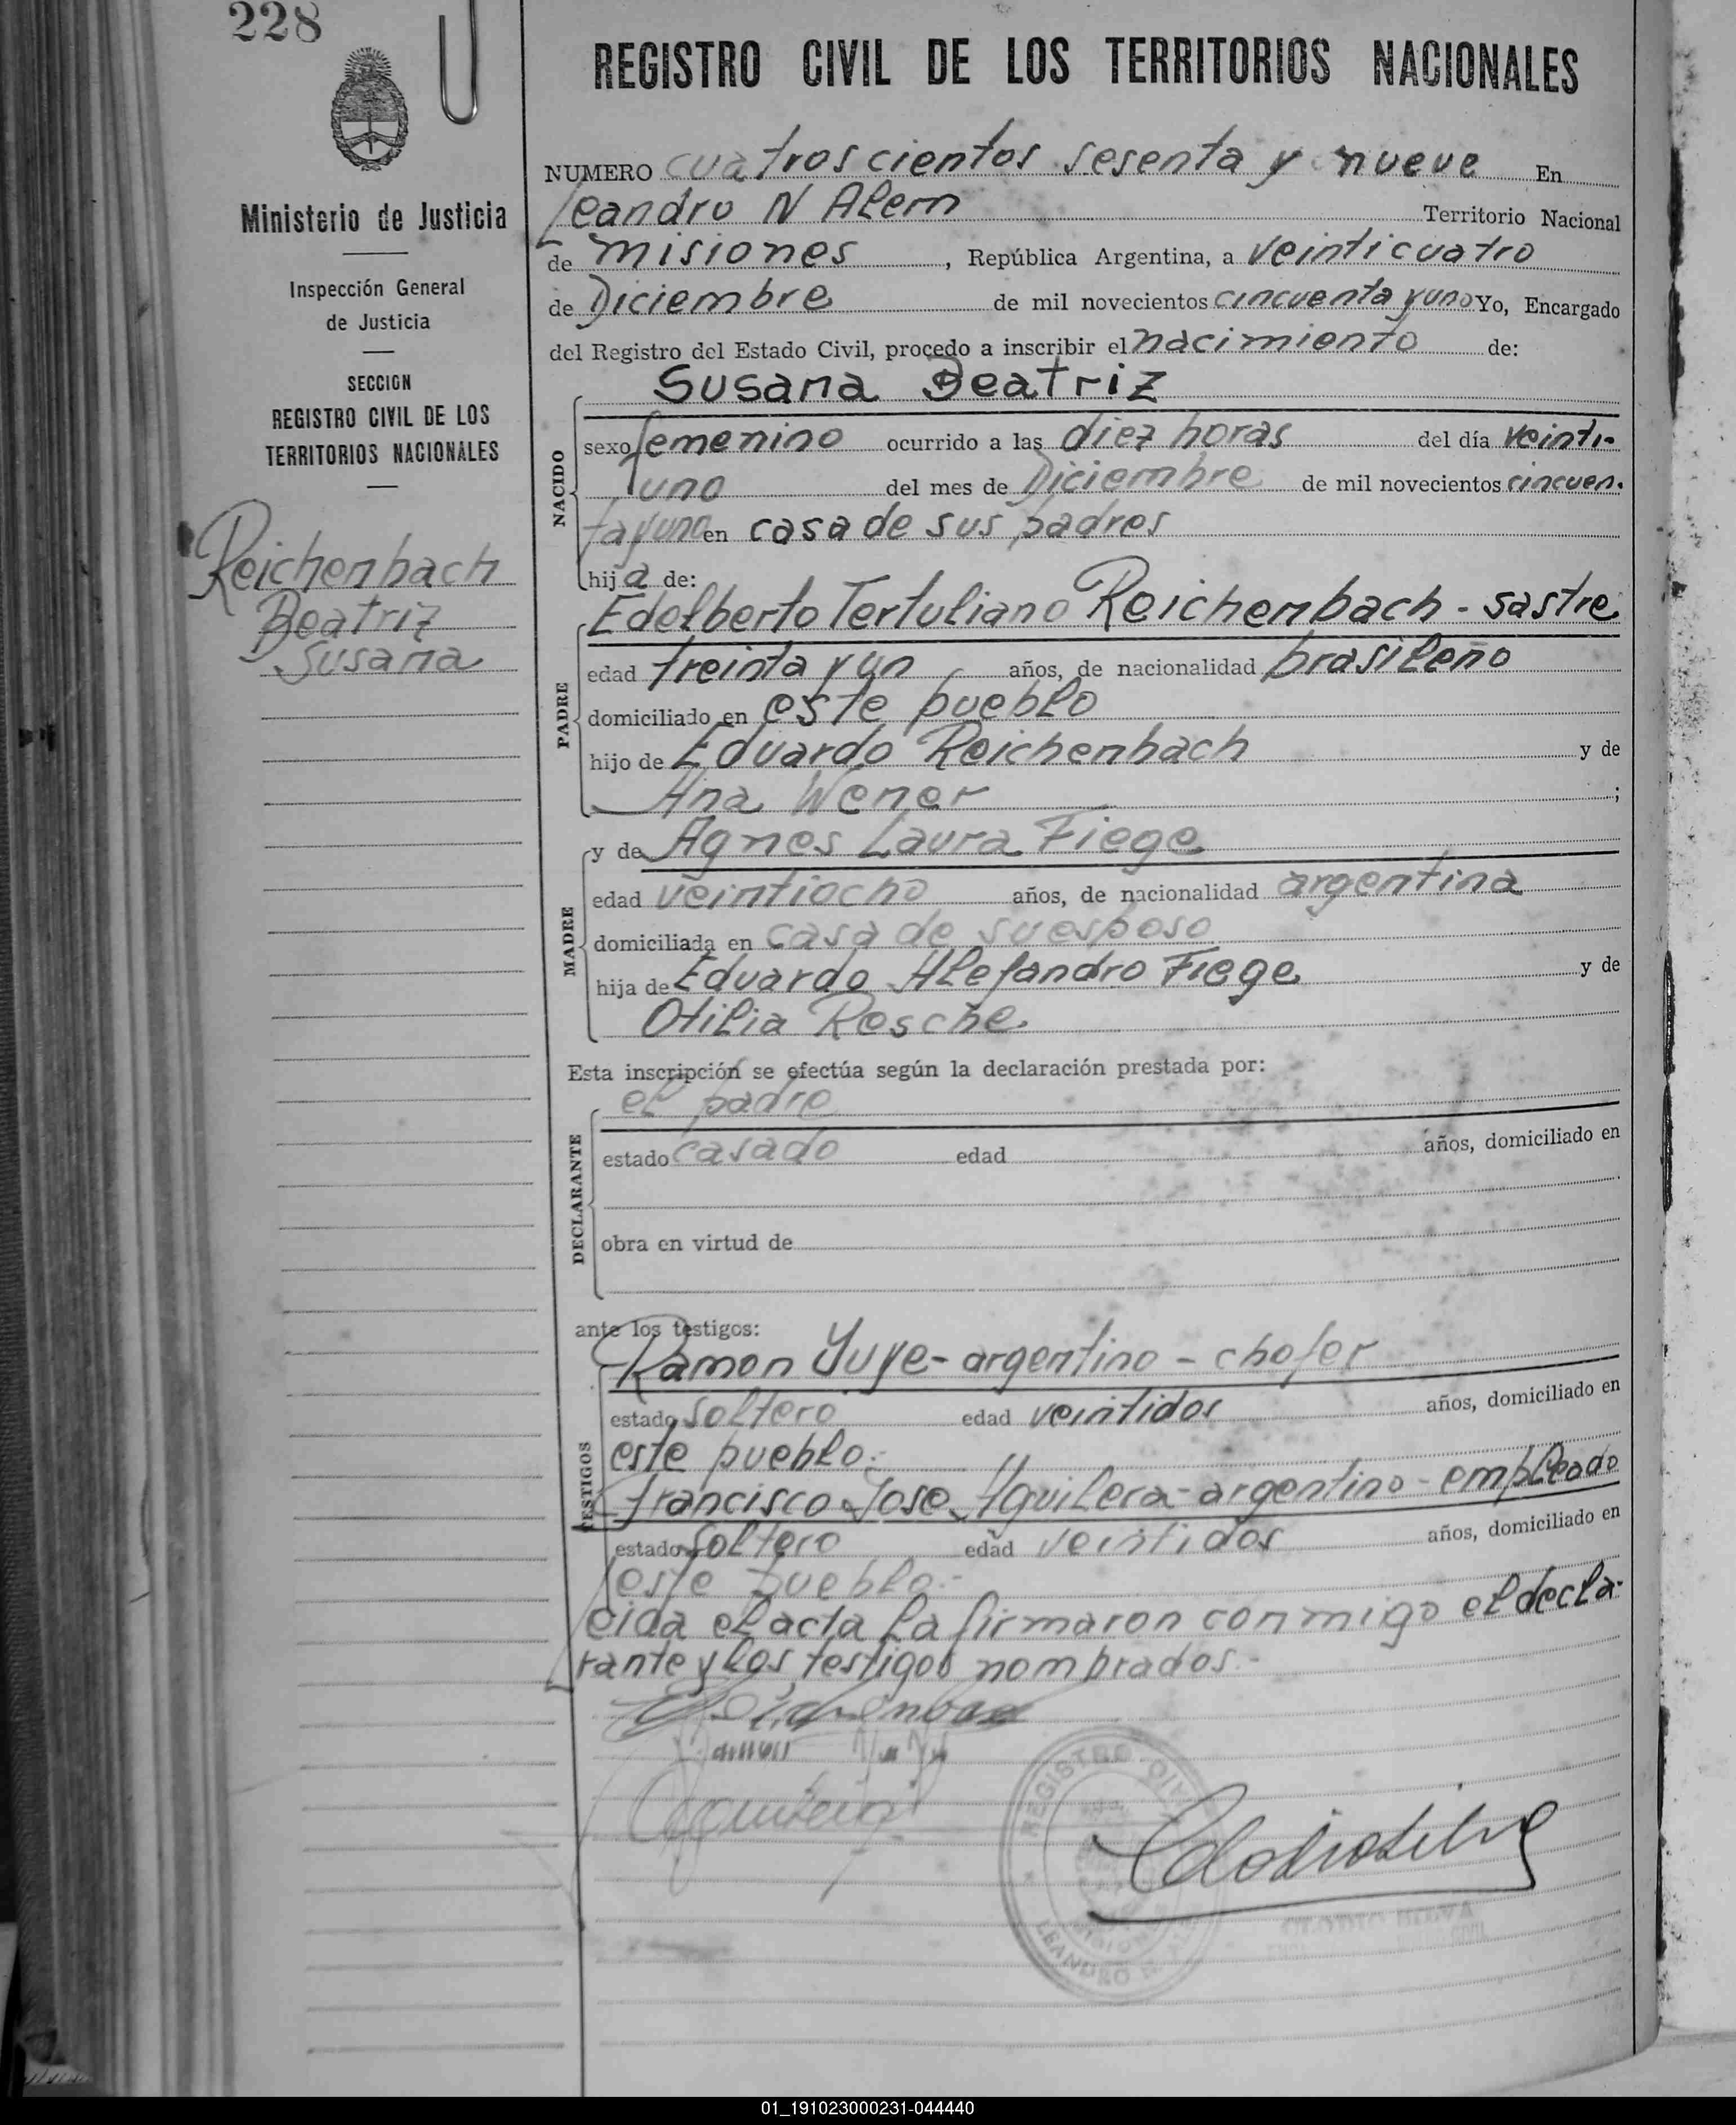 228
REGISTRO CIVIL DE LOS TERRITORIOS NACIONALES
Ministerio de Justicia
Inspección General
de Justicia
SECCION
REGISTRO CIVIL DE LOS
TERRITORIOS NACIONALES
Reichenbach
Beatriz
Susana
NUMERO cuatroscientos sesenta y nueve En
Leandro N Alem Territorio Nacional
de misiones, República Argentina, a veinticuatro
de Diciembre de mil novecientos cincuenta y uno Yo, Encargado
del Registro del Estado Civil, procedo a inscribir el nacimiento de:
Susana Beatriz
NACIDO
sexo femenino ocurrido a las diez horas del día veinti-
uno del mes de Diciembre de mil novecientos cincuen-
ta y uno en casa de sus padres
hija de:
Edelberto Tertuliano Reichenbach - sastre
PADRE
edad treinta y un años, de nacionalidad brasileño
domiciliado en este pueblo
hijo de Eduardo Reichenbach y de
Ana Wener ;
y de Agnes Laura Fiege
MADRE
edad veintiocho años, de nacionalidad argentina
domiciliada en casa de su esposo
hija de Eduardo Alejandro Fiege y de
Otilia Rosche.
Esta inscripción se efectúa según la declaración prestada por:
el padre
DECLARANTE
estado casado edad años, domiciliado en
obra en virtud de
ante los testigos:
Ramon Yuye - argentino - chofer
TESTIGOS
estado soltero edad veintidos años, domiciliado en
este pueblo.-
Francisco Jose Aguilera - argentino - empleado
estado soltero edad veintidos años, domiciliado en
este pueblo.-
Leida el acta la firmaron conmigo el decla-
rante y los testigos nombrados.-
REGISTRO CIVIL
LEANDRO N. ALEM
MISIONES
CLODIO SILVA
01_191023000231-044440